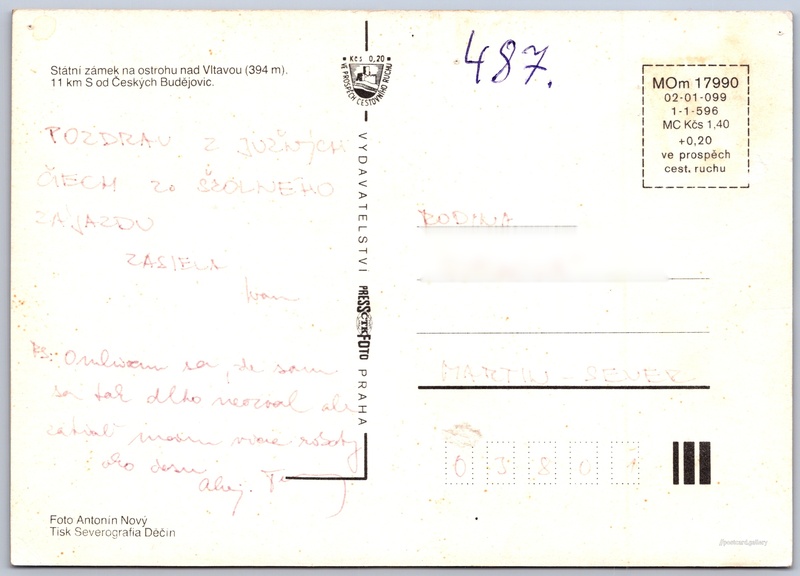 Státní zámek na ostrohu nad Vltavou (394 m).
11 km S od Českých Budějovic.
POZDRAV Z JUŽNÝCH
ČIECH ZO ŠKOLNÉHO
ZÁJAZDU
ZASIELA
Ivan
PS: Omlúvam sa, že som
sa tak dlho neozval ale
mám viac roboty
ako dosť.
Ahoj.
Foto Antonín Nový
Tisk Severografia Děčín
Kčs 0,20
VE PROSPĚCH CESTOVNÍHO RUCHU
VYDAVATELSTVÍ PRESSFOTO PRAHA
ČTK
487.
MOm 17990
02-01-099
1-1-596
MC Kčs 1,40
+0,20
ve prospěch
cest. ruchu
RODINA
MARTIN - SEVER
03801
//postcard.gallery